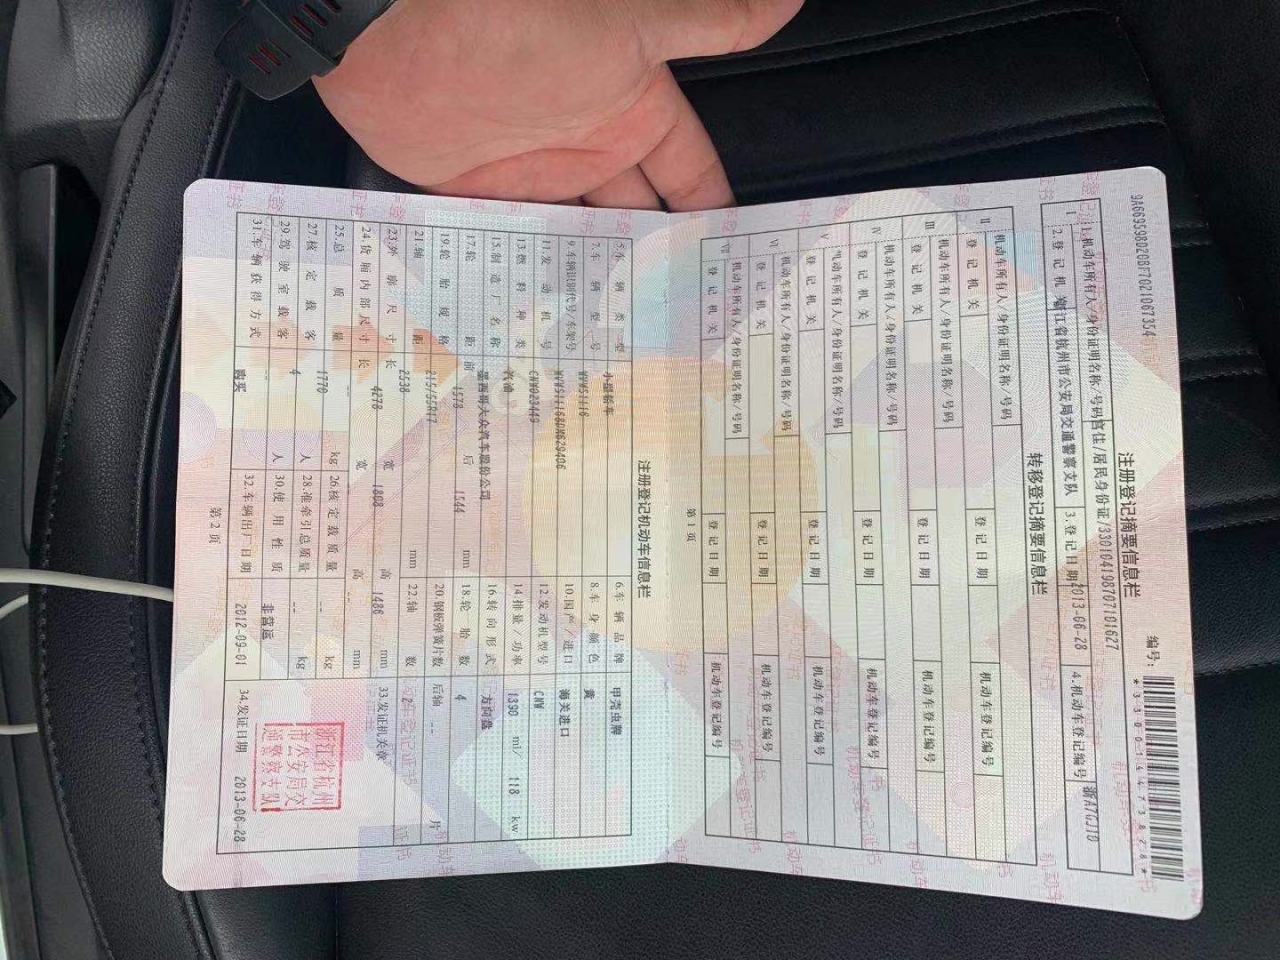 9A6695980208F7021087354
编号:
*330014473828*
注册登记摘要信息栏
1.机动车所有人/身份证明名称/号码 官佳/居民身份证/330104198707101627
2.登记机关 浙江省杭州市公安局交通警察支队 3.登记日期 2013-06-28 4.机动车登记编号 浙A7GJ10
转移登记摘要信息栏
Ⅱ 机动车所有人/身份证明名称/号码
登记机关 登记日期 机动车登记编号
Ⅲ 机动车所有人/身份证明名称/号码
登记机关 登记日期 机动车登记编号
Ⅳ 机动车所有人/身份证明名称/号码
登记机关 登记日期 机动车登记编号
Ⅴ 机动车所有人/身份证明名称/号码
登记机关 登记日期 机动车登记编号
Ⅵ 机动车所有人/身份证明名称/号码
登记机关 登记日期 机动车登记编号
Ⅶ 机动车所有人/身份证明名称/号码
登记机关 登记日期 机动车登记编号
第1页
注册登记机动车信息栏
5.车辆类型 小型轿车 6.车辆品牌 甲壳虫牌
7.车辆型号 8.车身颜色 黄
9.车辆识别代号/车架号 10.国产/进口 海关进口
11.发动机号 CNW023449 12.发动机型号 CNW
13.燃料种类 汽油 14.排量/功率 1390 ml/ 118 kw
15.制造厂名称 墨西哥大众汽车股份公司 16.转向形式 方向盘
17.轮距 前 1578 后 1544 mm 18.轮胎数 4
19.轮胎规格 215/55R17 20.钢板弹簧片数 后轴 -- 片
21.轴距 2538 mm 22.轴数 2
23.外廓尺寸 长 4278 宽 1808 高 1486 mm 33.发证机关章
24.货厢内部尺寸 长 -- 宽 -- 高 -- mm
25.总质量 1770 kg 26.核定载质量 -- kg
27.核定载客 4 人 28.准牵引总质量 -- kg
29.驾驶室载客 -- 人 30.使用性质 非营运
31.车辆获得方式 购买 32.车辆出厂日期 2012-09-01 34.发证日期 2013-06-28
浙江省杭州
市公安局交
通警察支队
第2页